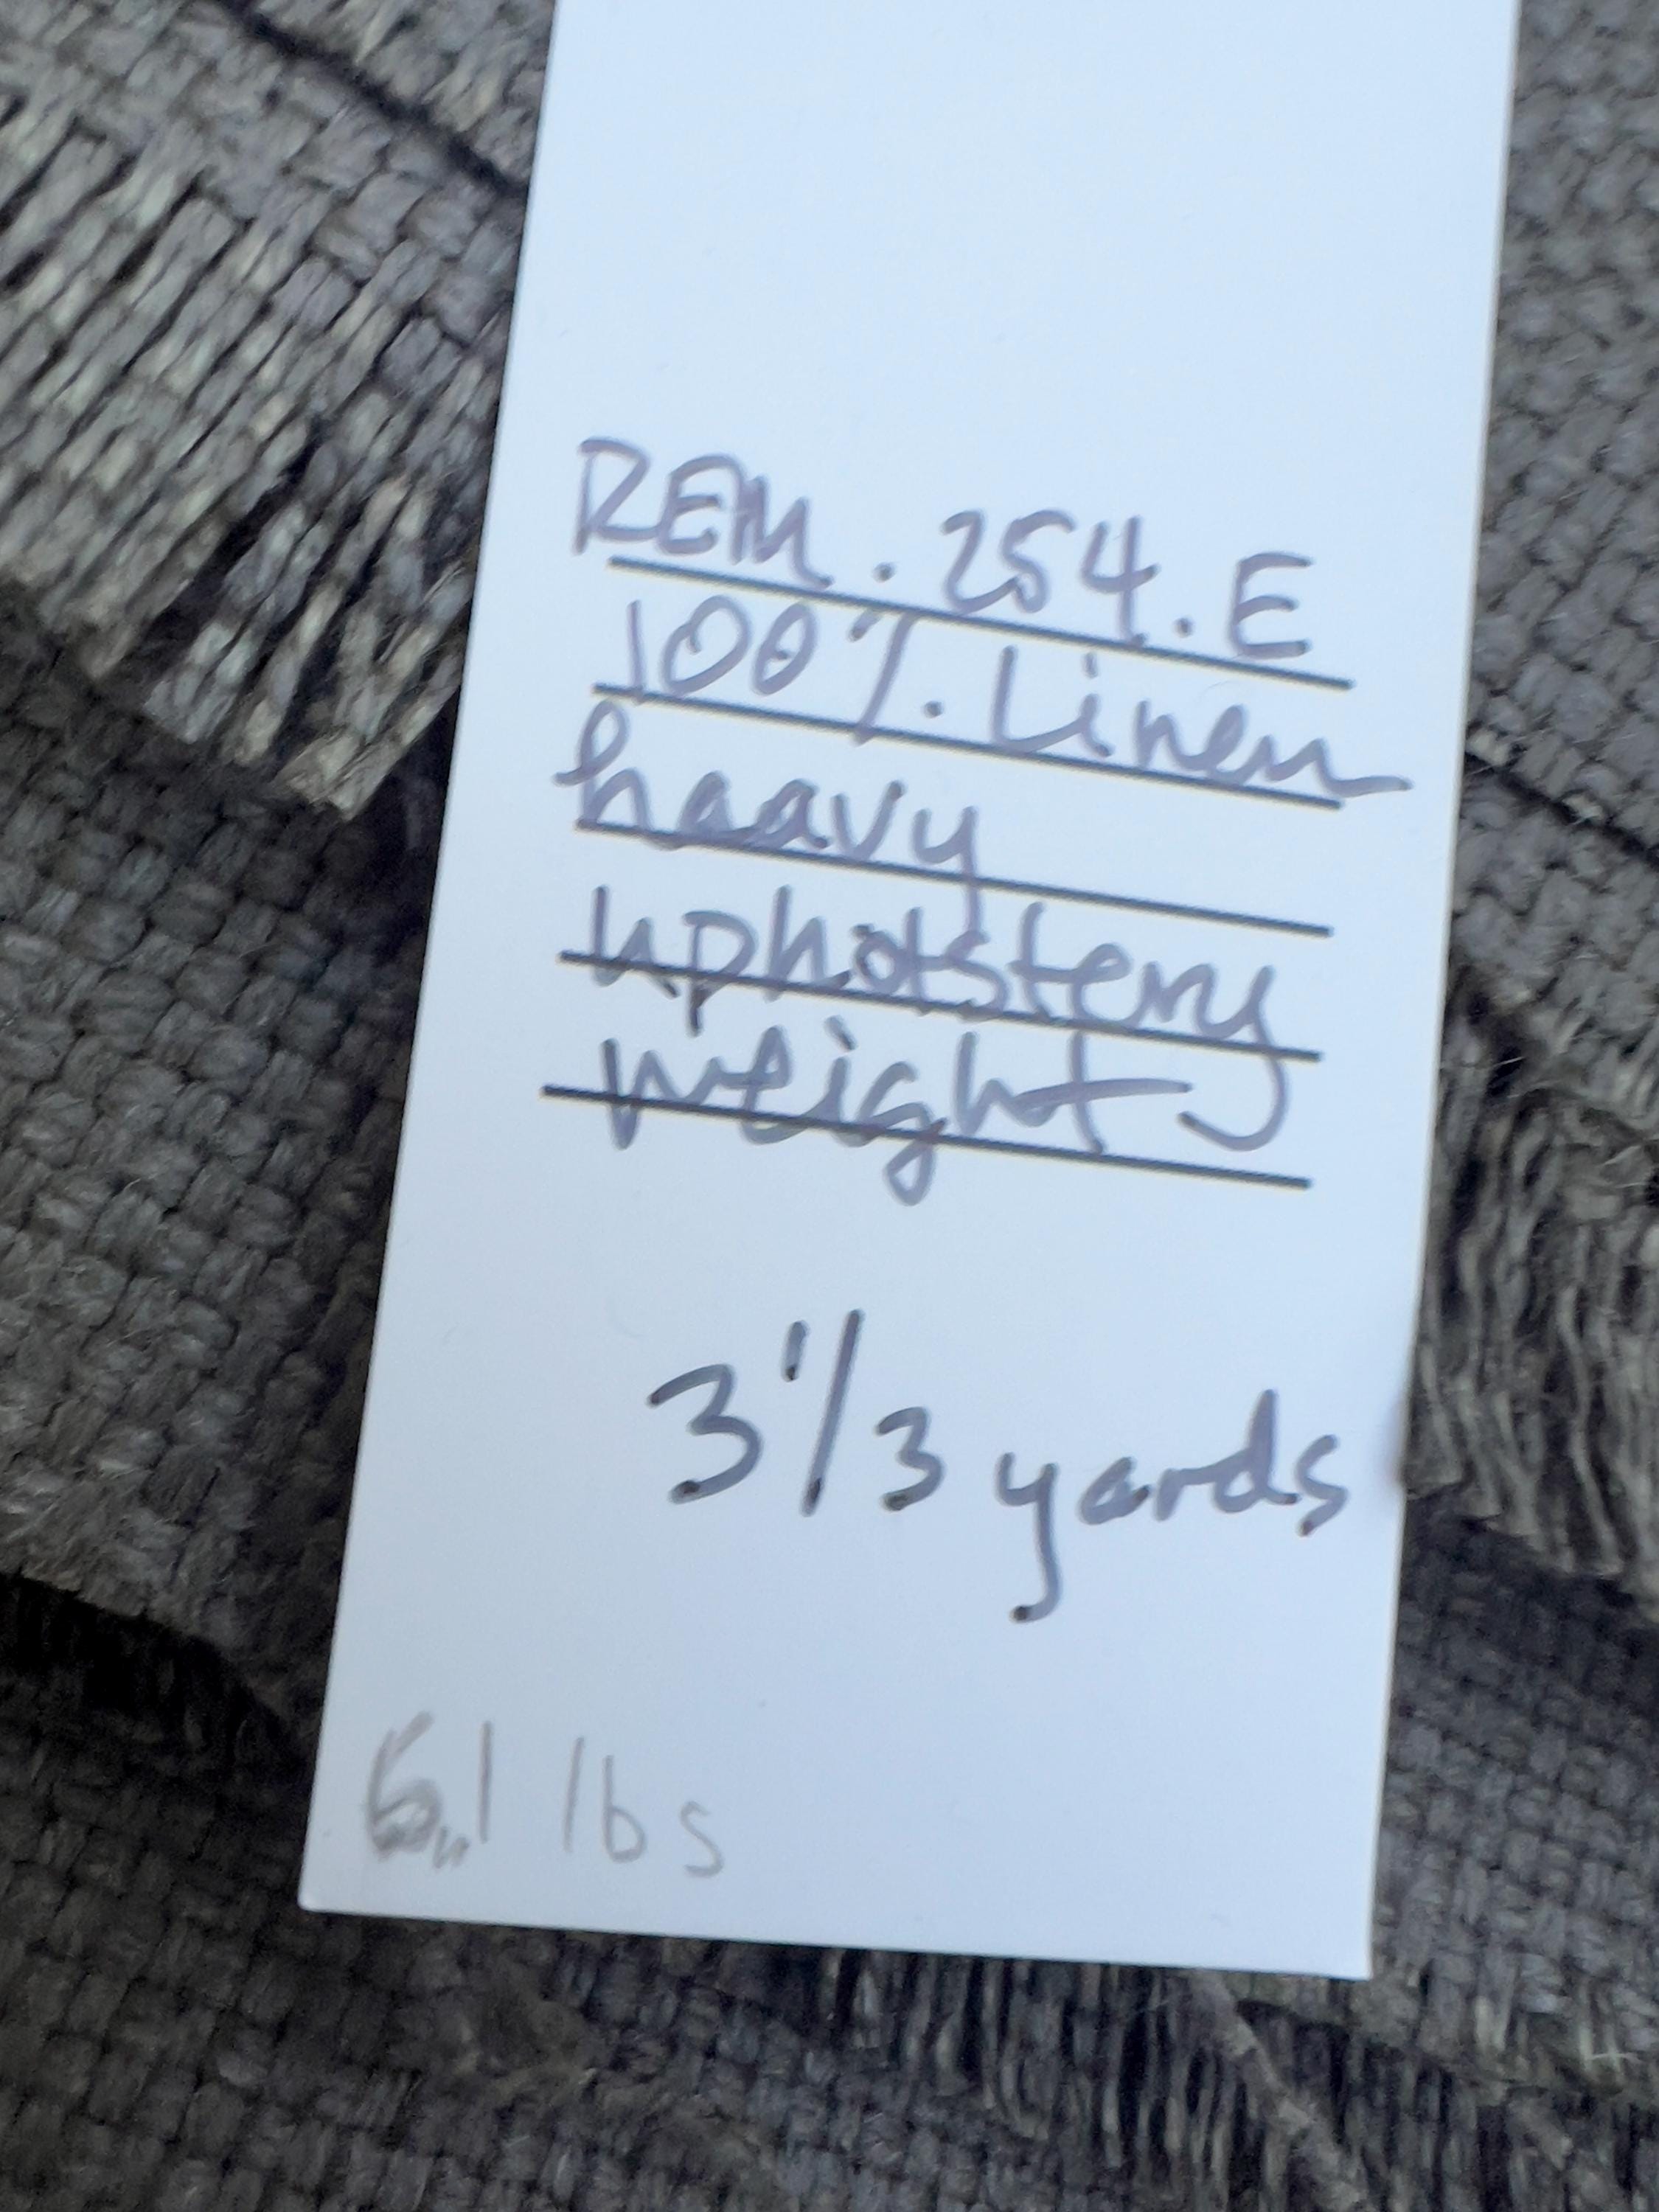 REM. 254. E
100% Linen
heavy
upholstery
weight
3 1/3 yards
6.1 lbs